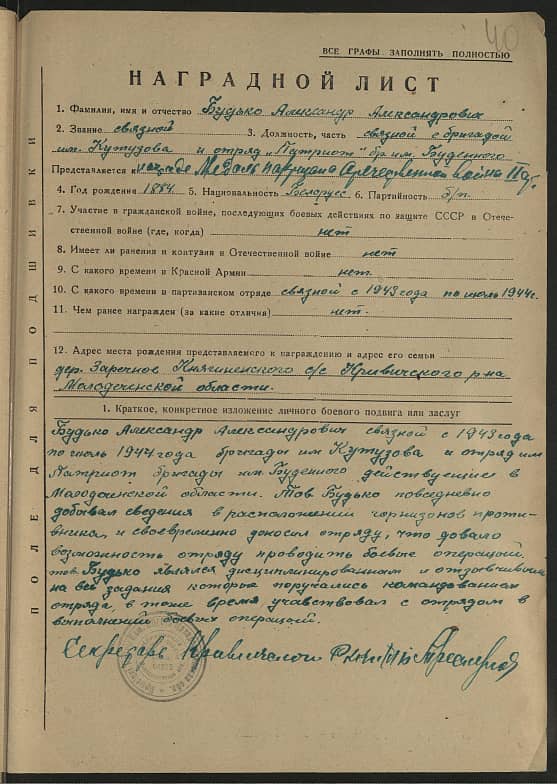 40
ВСЕ ГРАФЫ ЗАПОЛНЯТЬ ПОЛНОСТЬЮ
НАГРАДНОЙ ЛИСТ
1. Фамилия, имя и отчество Будько Александр Александрович
2. Звание связной 3. Должность, часть связной с бригадой
им. Кутузова и отряд "Патриот" бр им. Буденного
Представляется к награде Медаль партизана Отечественной войны II ст.
4. Год рождения 1884 5. Национальность Белорус 6. Партийность б/п
7. Участие в гражданской войне, последующих боевых действиях по защите СССР в Отече-
ственной войне (где, когда) нет
8. Имеет ли ранения и контузия в Отечественной войне нет
9. С какого времени в Красной Армии нет.
10. С какого времени в партизанском отряде связной с 1943 года по июль 1944 г.
11. Чем ранее награжден (за какие отличия) нет.
12. Адрес места рождения представляемого к награждению и адрес его семьи
дер. Заречное Княгиненского с/с Кривичского р-на
Молодеченской области.
1. Краткое, конкретное изложение личного боевого подвига или заслуг
Будько Александр Александрович связной с 1943 года
по июль 1944 года бригады им Кутузова и отряд им
Патриот бригады им. Буденного действующие в
Молодеченской области. Тов Будько повседневно
добывал сведения в расположении горнизонов против-
ника, и своевременно доносил отряду, что довало
возможность отряду проводить боевые операций.
тов. Будько являлся дисциплинированным и отзывчивым
на все задания которые поручались командованием
отряда, в тоже время учавствовал с отрядом в
выполнении боевых операций.
Секретарь Кривичского РК
ПОЛЕ ДЛЯ ПОДШИВКИ